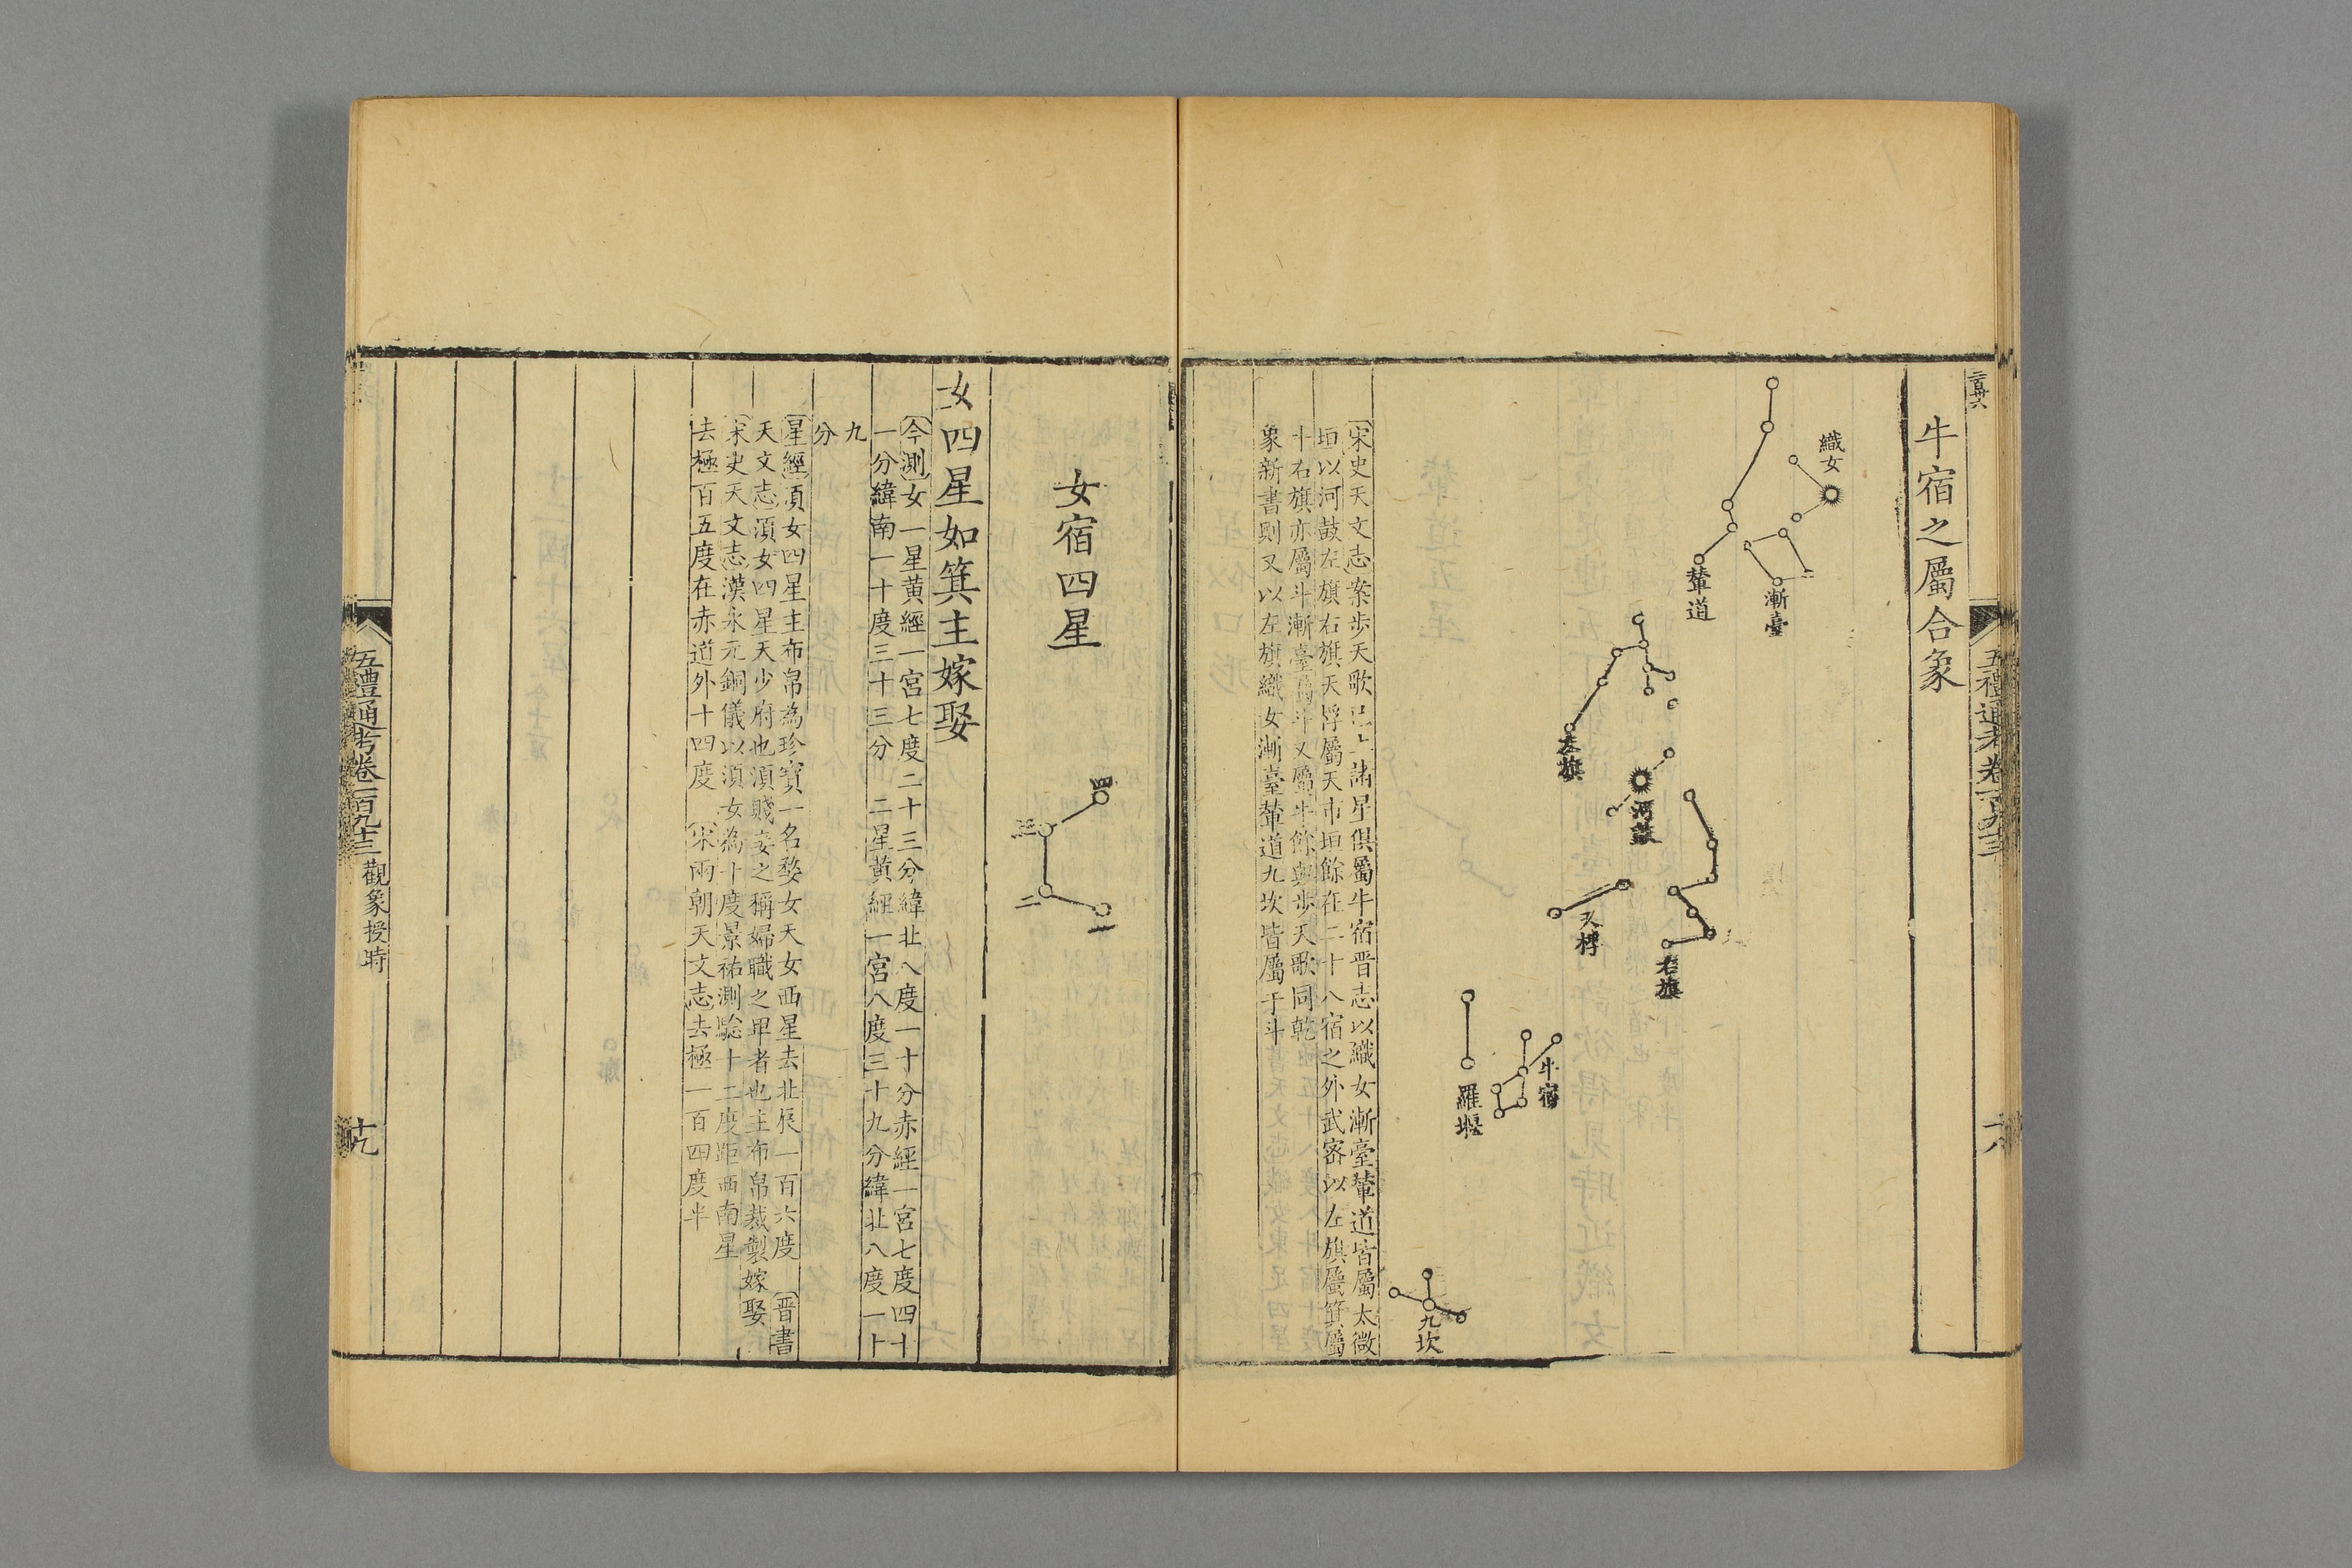 五禮通考卷一百九十三
十八
牛宿之屬合象
織女
漸臺
輦道
左旗
河鼓
右旗
天桴
牛宿
羅堰
九坎
宋史天文志案步天歌已上諸星俱屬牛宿晋志以織女漸臺輦道皆屬太微
垣以河鼓左旗右旗天桴屬天市垣餘在二十八宿之外武密以左旗屬箕屬
斗右旗亦屬斗漸臺屬斗又屬牛餘與步天歌同乾
象新書則又以左旗織女漸臺輦道九坎皆屬于斗
女宿四星
四
三
二
一
女四星如箕主嫁娶
今測女一星黄經一宮七度二十三分緯北八度一十分赤經一宮七度四十
一分緯南一十度三十三分 二星黄經一宮八度三十九分緯北八度一十
九
分
星經須女四星主布帛為珍寳一名婺女天女西星去北辰一百六度 晋書
天文志須女四星天少府也須賤妾之稱婦職之卑者也主布帛裁製嫁娶
宋史天文志漢永元銅儀以須女為十度景祐測驗十二度距西南星
去極百五度在赤道外十四度 宋兩朝天文志去極一百四度半
五禮通考卷一百九十三 觀象授時
十九